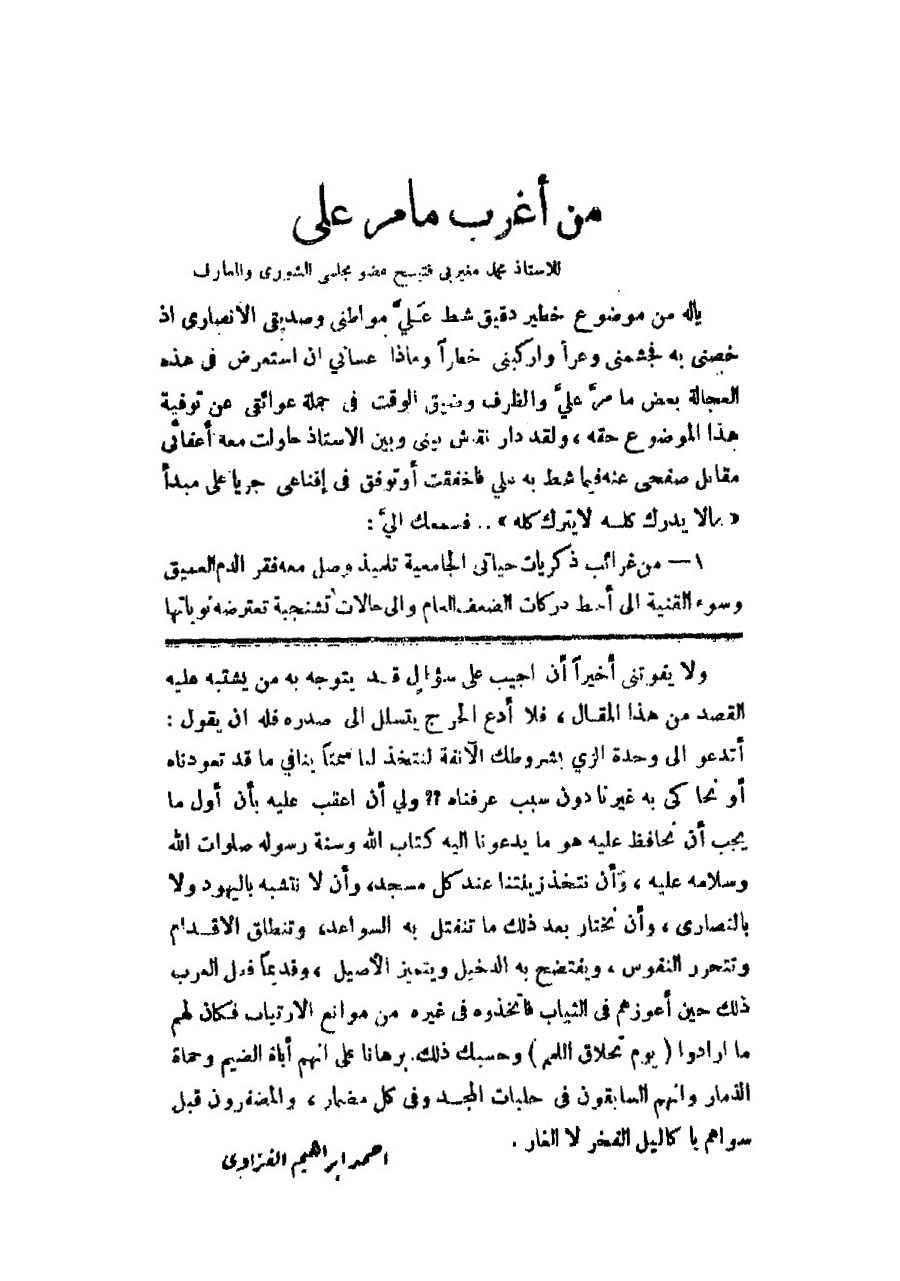 من أغرب ما مر على
للاستاذ محمد مغيربي فتيح عضو مجلس الشورى والمعارف
ياله من موضوع خطير دقيق شط عَليَّ مواطني وصديقي الأنصاري اذ
خصني به فجشمني وعراً واركبني خطاراً وماذا عساني ان استعرض في هذه
العجالة بعض ما مرَّ عليَّ والظرف وضيق الوقت في جملة عوائقي عن توفية
هذا الموضوع حقه ، ولقد دار نقاش بيني وبين الاستاذ حاولت معه أعفائي
مقابل صفحي عنه فيما شط به علي فاخفقت أو توفق في إقناعي جريا على مبدأ
« مالا يدرك كله لا يترك كله » .. فسمعك اليَّ :
١ — من غرائب ذكريات حياتي الجامعية تلميذ وصل معه فقر الدم العميق
وسوء القنية الى أحط دركات الضعف العام والى حالات تشنجية تعترضه نوباتها
ولا يفوتني أخيراً أن اجيب على سؤال قد يتوجه به من يشتبه عليه
القصد من هذا المقال ، فلا أدع الحرج يتسلل الى صدره فله ان يقول :
أتدعو الى وحدة الزي بشروطك الآنفة لنتخذ لنا سمتاً ينافي ما قد تعودناه
أو نحاكي به غيرنا دون سبب عرفناه ؟؟ ولي أن اعقب عليه بأن أول ما
يجب أن نحافظ عليه هو ما يدعونا اليه كتاب الله وسنة رسوله صلوات الله
وسلامه عليه ، وأن نتخذ زينتنا عند كل مسجد، وأن لا نتشبه باليهود ولا
بالنصارى ، وأن نختار بعد ذلك ما تنفتل به السواعد، وتنطلق الاقدام
وتتحرر النفوس ، ويفتضح به الدخيل ويتميز الأصيل ، وقديماً فعل العرب
ذلك حين أعوزهم في الثياب فاتخذوه في غيره من موانع الارتياب فكان لهم
ما ارادوا ( يوم تحلاق اللمم ) وحسبك ذلك برهانا على انهم أباة الضيم وحماة
الذمار وانهم السابقون في حلبات المجد وفي كل مضمار ، والمضفرون قبل
سواهم باكاليل الفخر لا الغار .
احمد ابراهيم الغزاوي